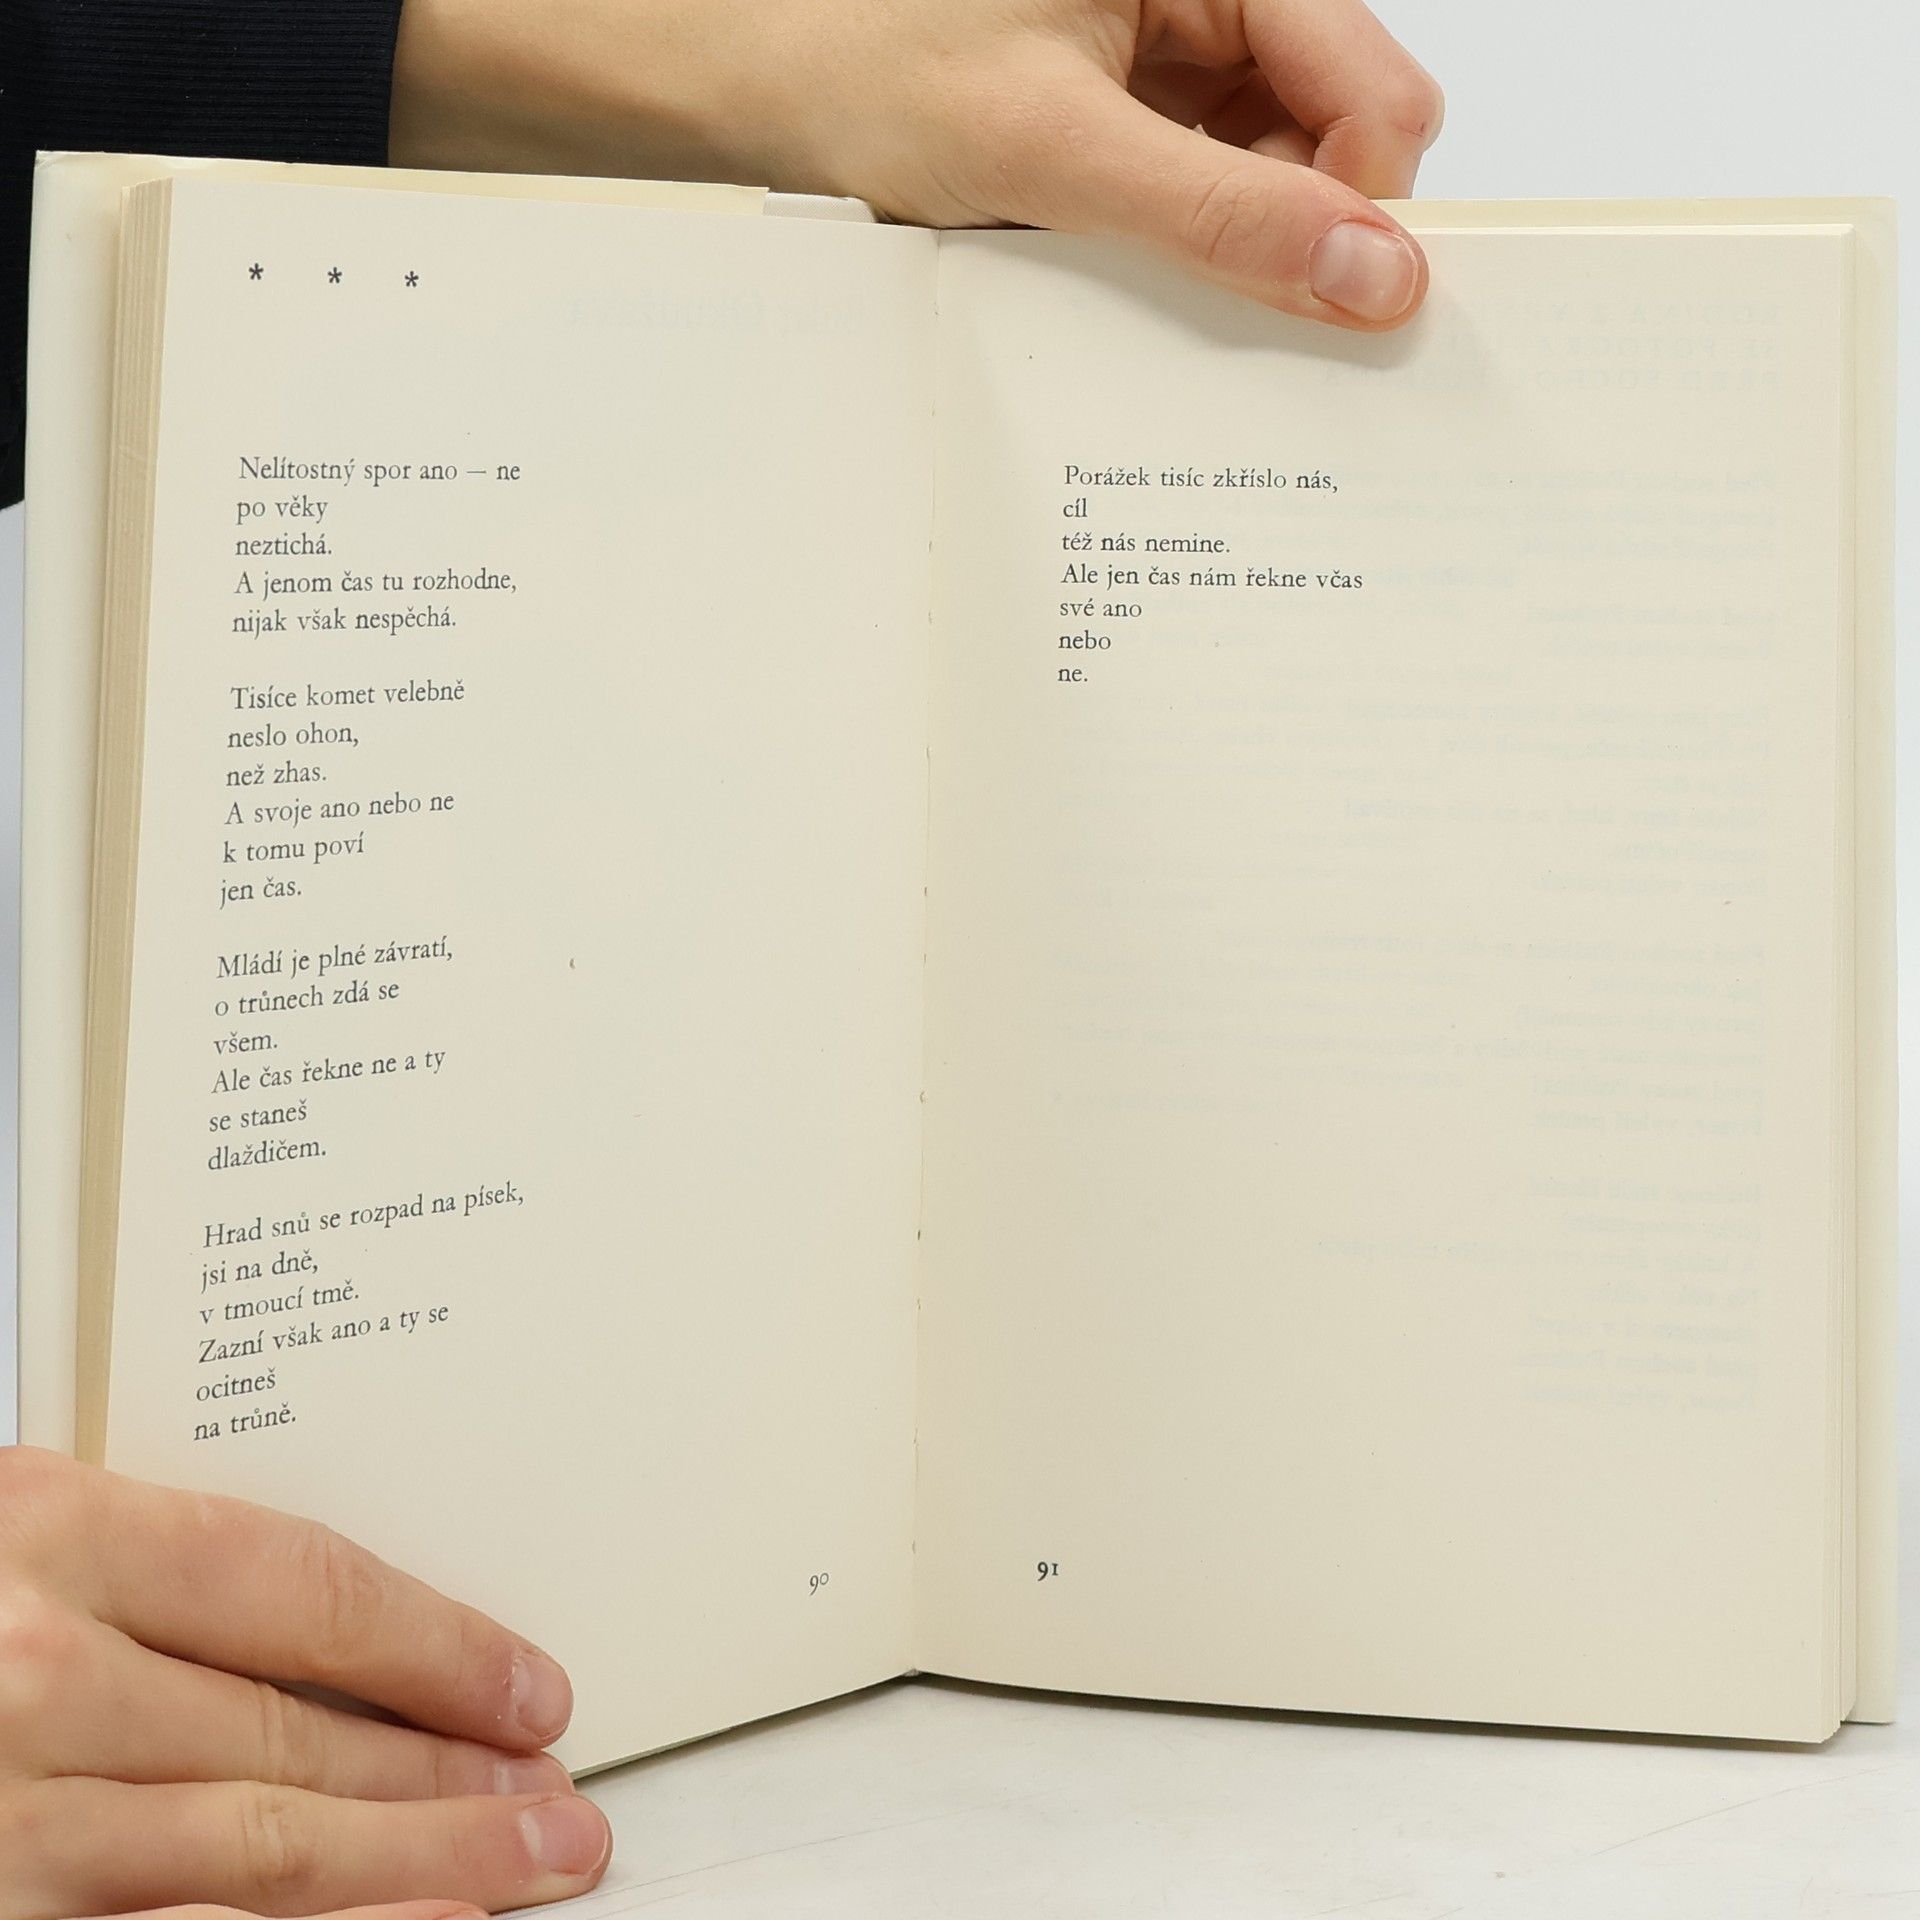 * * *
Nelítostný spor ano — ne
po věky
neztichá.
A jenom čas tu rozhodne,
nijak však nespěchá.
Tisíce komet velebně
neslo ohon,
než zhas.
A svoje ano nebo ne
k tomu poví
jen čas.
Mládí je plné závratí,
o trůnech zdá se
všem.
Ale čas řekne ne a ty
se staneš
dlaždičem.
Hrad snů se rozpad na písek,
jsi na dně,
v tmoucí tmě.
Zazní však ano a ty se
ocitneš
na trůně.
90
Porážek tisíc zkříslo nás,
cíl
též nás nemine.
Ale jen čas nám řekne včas
své ano
nebo
ne.
91